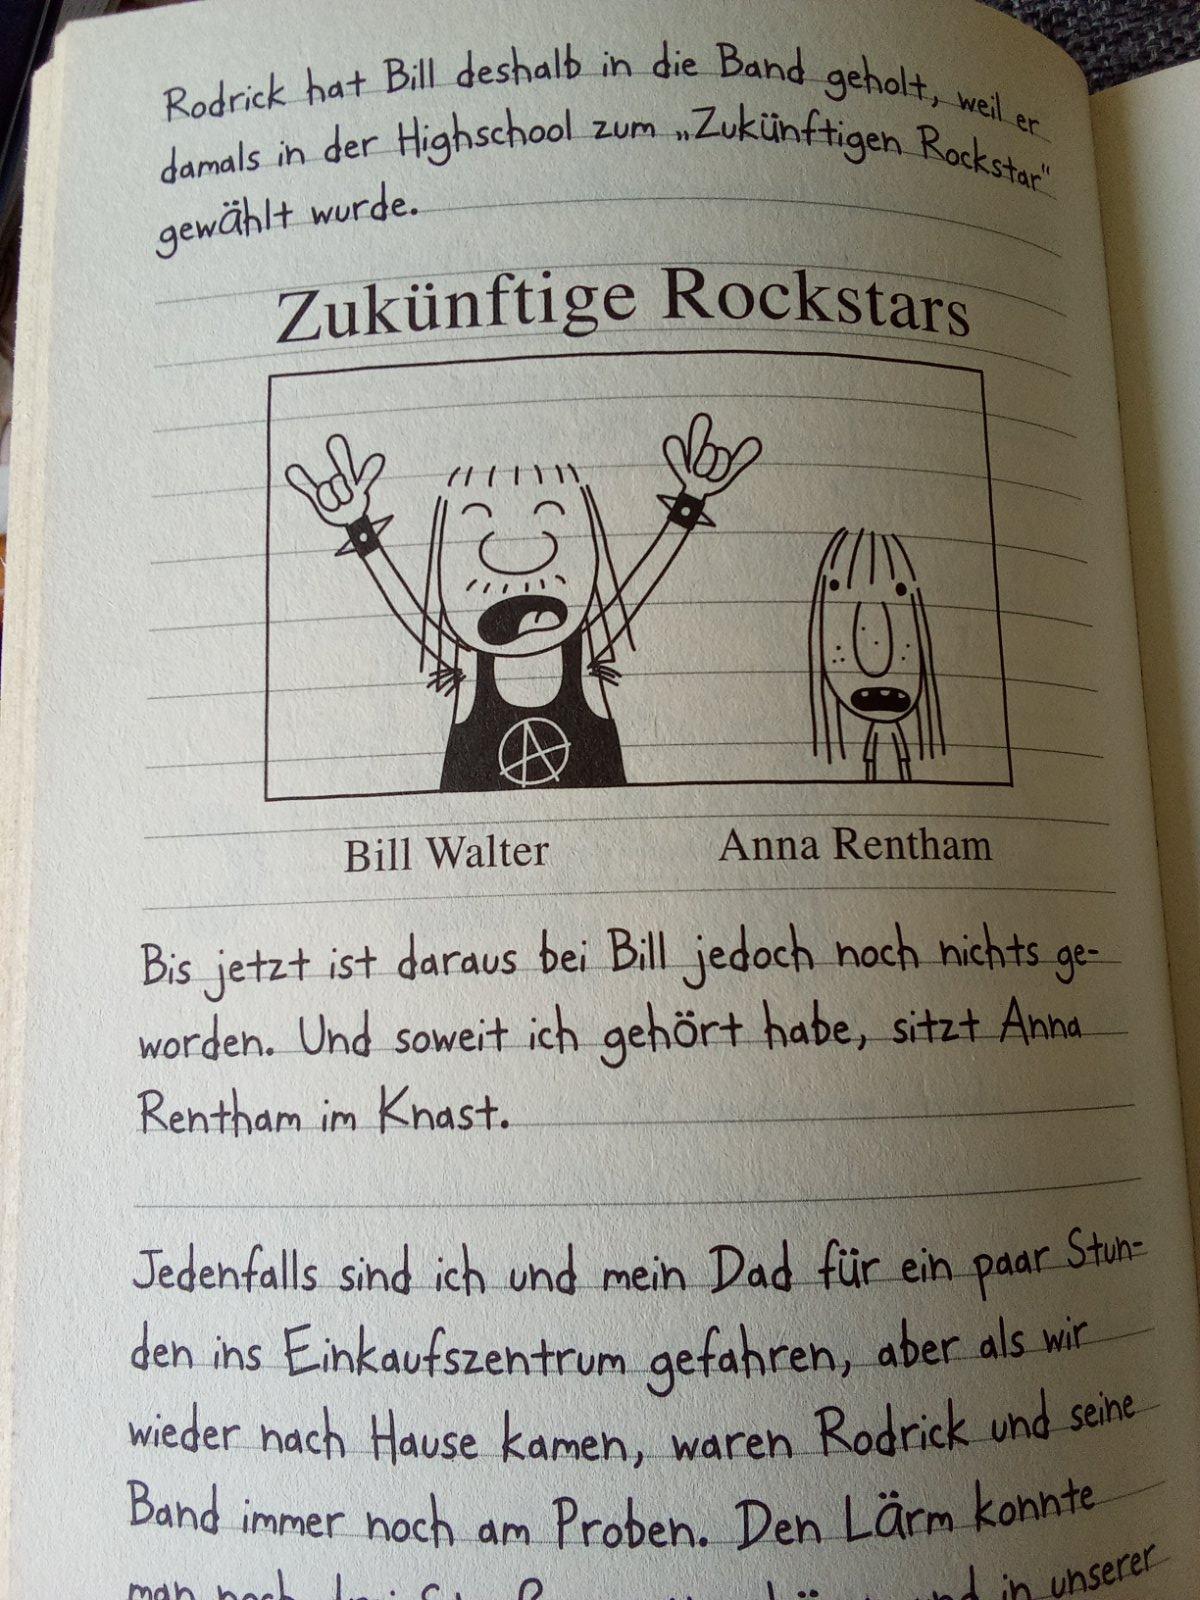 Rodrick hat Bill deshalb in die Band geholt, weil er
damals in der Highschool zum „Zukünftigen Rockstar"
gewählt wurde.
Zukünftige Rockstars
Bill Walter
Anna Rentham
Bis jetzt ist daraus bei Bill jedoch noch nichts ge-
worden. Und soweit ich gehört habe, sitzt Anna
Rentham im Knast.
Jedenfalls sind ich und mein Dad für ein paar Stun-
den ins Einkaufszentrum gefahren, aber als wir
wieder nach Hause kamen, waren Rodrick und seine
Band immer noch am Proben. Den Lärm konnte
man noch und in unserer